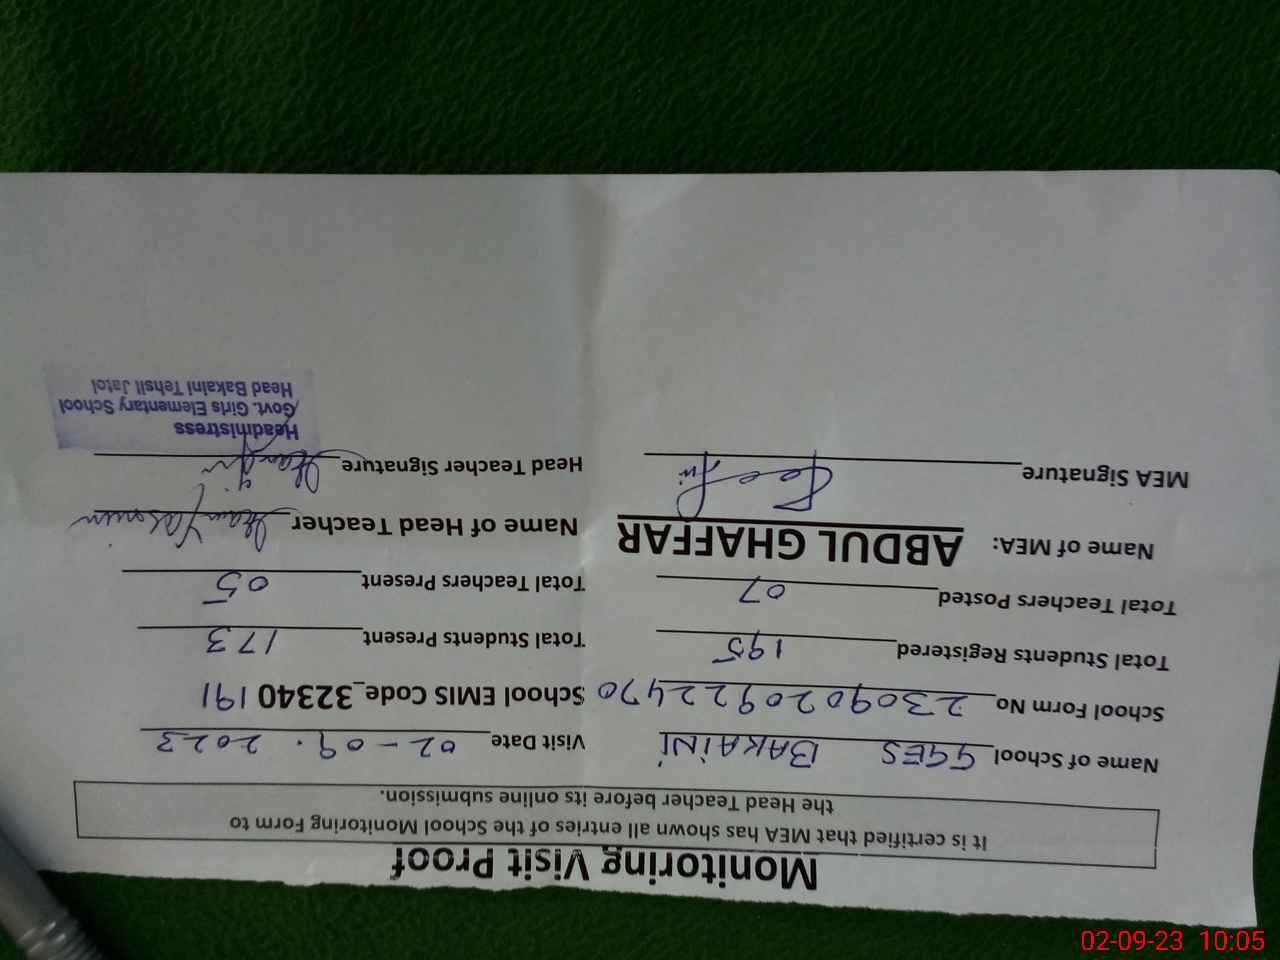 Monitoring Visit Proof
It is certified that MEA has shown all entries of the School Monitoring Form to
the Head Teacher before its online submission.
Name of School GGES BAKAINI Visit Date 02-09.2023
School Form No 230902092 2470 School EMIS Code_32340 191
Total Students Registered 195 Total Students Present 173
Total Teachers Posted 07 Total Teachers Present 05
Name of MEA: ABDUL GHAFFAR Name of Head Teacher Yasmin
MEA Signature Head Teacher Signature
Headmistress
Govt. Girls Elementary School
Head Bakaini Tehsil Jatoi
02-09-23 10:05